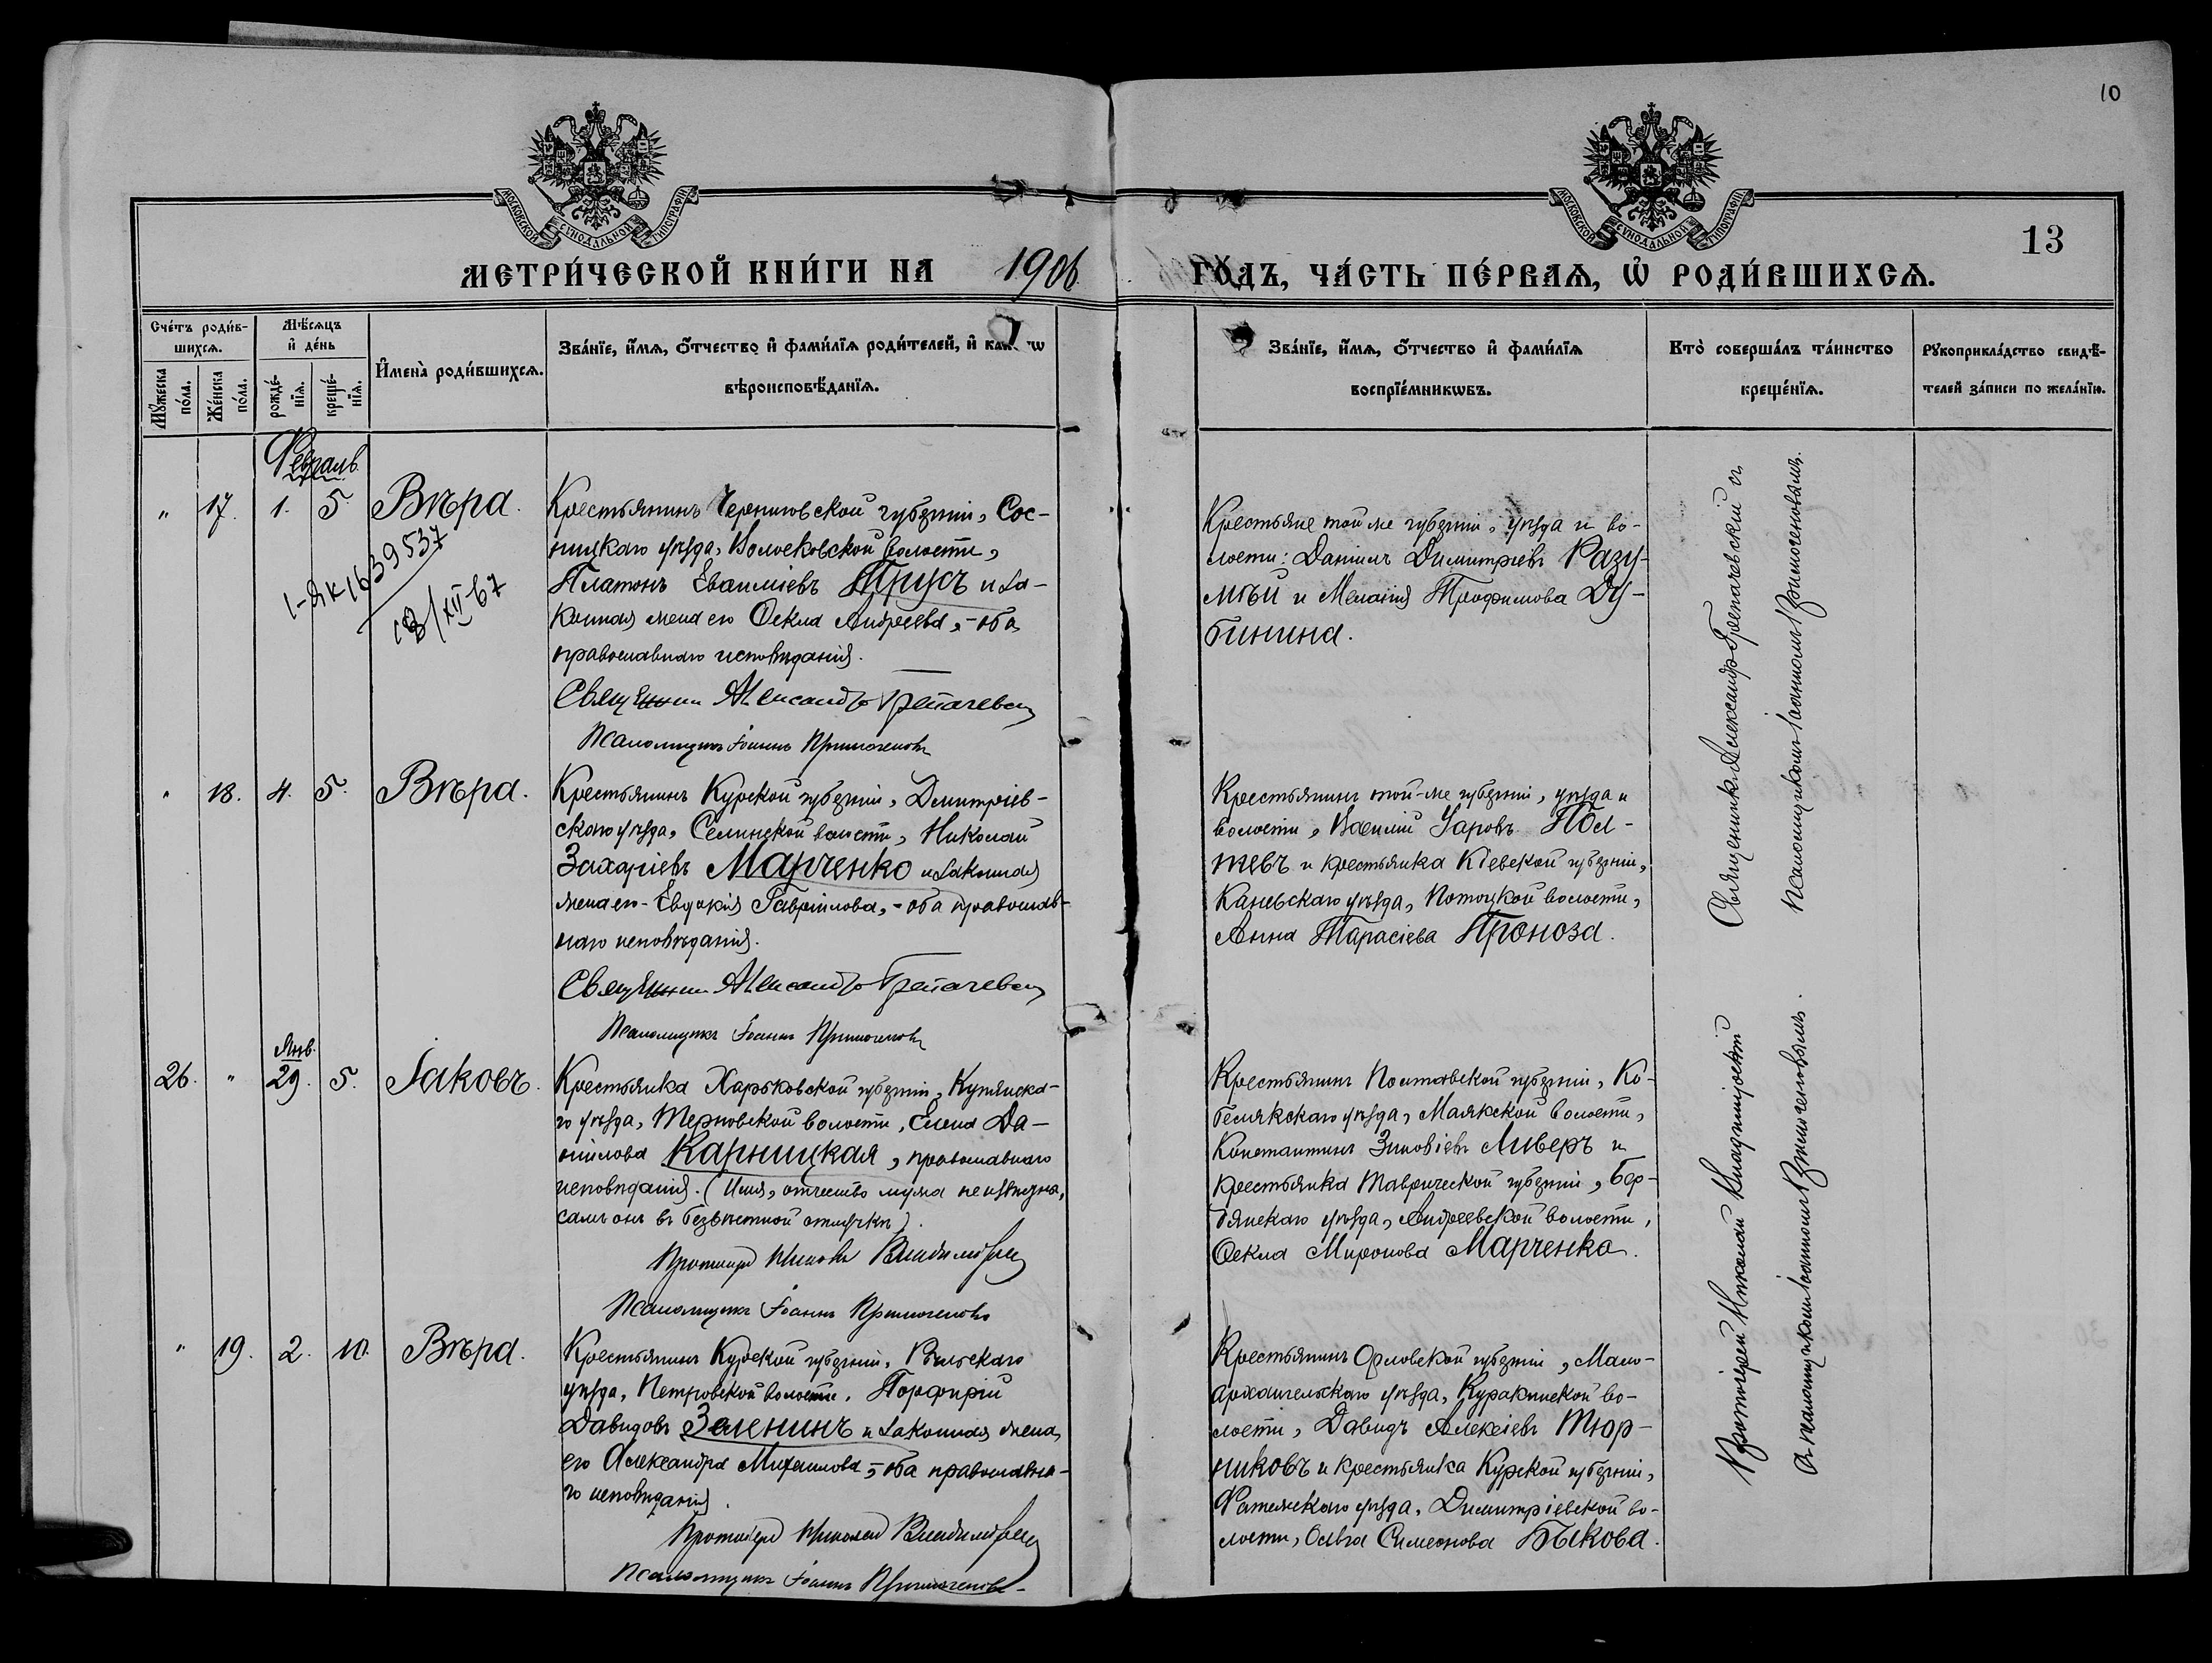 10
МОСКОВСКОЙ СУНОДАЛЬНОЙ ТИПОГРАФІИ
МОСКОВСКОЙ СУНОДАЛЬНОЙ ТИПОГРАФІИ
13
МЕТРИ́ЧЕСКОЙ КНИ́ГИ НА 1906 ГО́ДЪ, ЧА́СТЬ ПЕ́РВАѦ, Ѡ҆ РОДИ́ВШИХСѦ.
Сче́тъ роди́в-
шихсѧ.
Мꙋ́жеска
по́ла.
Же́нска
по́ла.
Мѣ́сѧцъ
и҆ де́нь
рожде́-
нїѧ.
креще́-
нїѧ.
И҆мена̀ роди́вшихсѧ.
Зва́нїе, и҆́мѧ, ѻ҆́тчество и҆ фами́лїѧ роди́телей, и҆
вѣроисповѣ́данїѧ.
Зва́нїе, и҆́мѧ, ѻ҆́тчество и҆ фами́лїѧ
воспрїе́мникѡвъ.
Кто̀ соверша́лъ та́инство
креще́нїѧ.
Рꙋкоприкла́дство свидѣ́-
телей за́писи по жела́нїю.
Февраль.
" 17. 1. 5. Вѣра.
1-ЯК 1639537
18/XII-67
Крестьянинъ Черниговской губерніи, Сос-
ницкаго уѣзда, Волосковской волости,
Платонъ Евѳиміевъ Трусъ и за-
конная жена его Ѳекла Андреева, - оба
православнаго исповѣданія.
Священникъ Александръ Грепачевскій
Псаломщикъ Іоаннъ Примогеновъ
Крестьяне той же губерніи, уѣзда и во-
лости: Даніилъ Димитріевъ Разу-
мѣй и Меланія Трофимова Ду-
бинина.
Священникъ Александръ Грепачевскій съ
псаломщикомъ Іоанномъ Примогеновымъ.
" 18. 4. 5. Вѣра.
Крестьянинъ Курской губерніи, Дмитріев-
скаго уѣзда, Селинской волости, Николай
Захаріевъ Марченко и законная
жена его - Евдокія Гавріилова, - оба православ-
наго исповѣданія.
Священникъ Александръ Грепачевскій
Псаломщикъ Іоаннъ Примогеновъ
Крестьянинъ той-же губерніи, уѣзда и
волости, Василій Уаровъ Пол-
тевъ и крестьянка Кіевской губерніи,
Каневскаго уѣзда, Потоцкой волости,
Анна Тарасіева Проноза.
26. " Янв. 29. 5. Іаковъ.
Крестьянка Харьковской губерніи, Купянска-
го уѣзда, Терновской волости, Елена Да-
ніилова Карницкая, православнаго
исповѣданія. (Имя, отчество мужа неизвѣстна,
самъ онъ въ безвѣстной отлучкѣ).
Протоіерей Николай
Псаломщикъ Іоаннъ Примогеновъ
Крестьянинъ Полтавской губерніи, Ко-
белякскаго уѣзда, Маякской волости,
Константинъ Зиновіевъ Ливеръ и
крестьянка Таврической губерніи, Бер-
дянскаго уѣзда, Андреевской волости,
Ѳекла Миронова Марченко.
Протоіерей Николай
съ псаломщикомъ Іоанномъ Примогеновымъ.
" 19. 2. 10. Вѣра.
Крестьянинъ Курской губерніи, Рыльскаго
уѣзда, Петровской волости, Порфирій
Давидовъ Зеленинъ и законная жена
его Александра Михаилова, - оба православна-
го исповѣданія.
Протоіерей Николай
Псаломщикъ Іоаннъ Примогеновъ
Крестьянинъ Орловской губерніи, Мало-
архангельскаго уѣзда, Куракинской во-
лости, Давидъ Алексіевъ Тюр-
никовъ и крестьянка Курской губерніи,
Фатежскаго уѣзда, Димитріевской во-
лости, Ольга Симеонова Быкова.